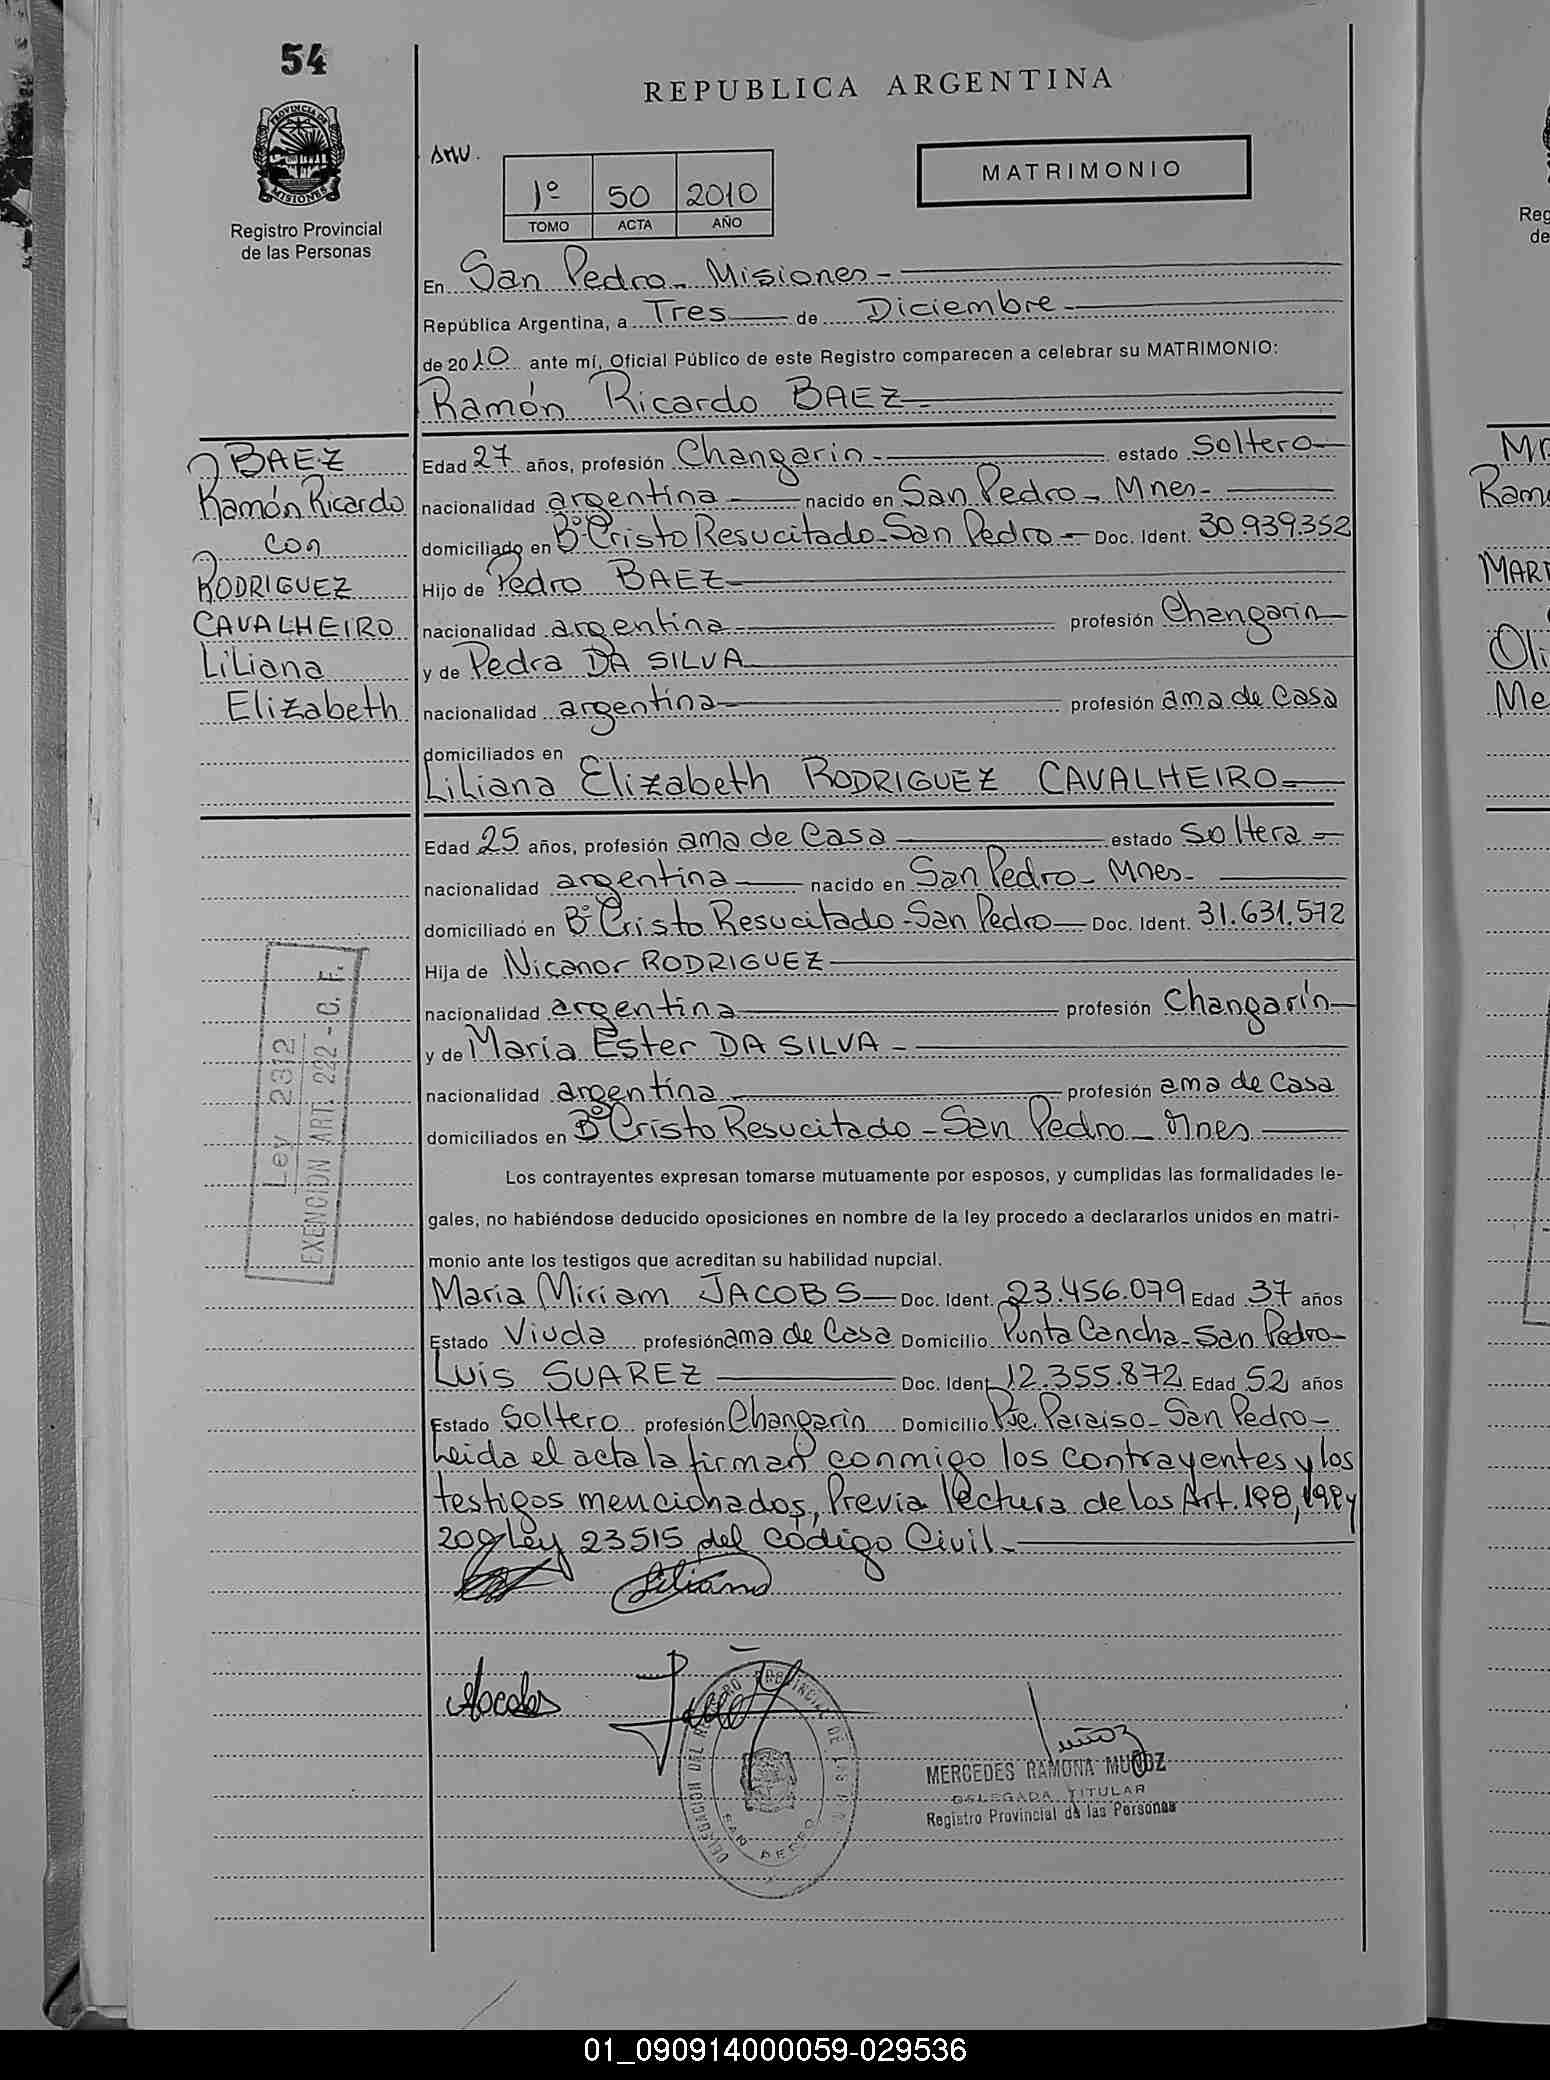 54
REPUBLICA ARGENTINA
PROVINCIA DE MISIONES
Registro Provincial
de las Personas
1º 50 2010
TOMO ACTA AÑO
MATRIMONIO
En San Pedro - Misiones -
República Argentina, a Tres de Diciembre
de 2010 ante mí, Oficial Público de este Registro comparecen a celebrar su MATRIMONIO:
Ramón Ricardo BAEZ
BAEZ
Ramón Ricardo
con
RODRIGUEZ
CAVALHEIRO
Liliana
Elizabeth
Edad 27 años, profesión Changarin estado Soltero
nacionalidad argentina nacido en San Pedro - Mnes -
domiciliado en Bº Cristo Resucitado - San Pedro - Doc. Ident. 30.939.352
Hijo de Pedro BAEZ
nacionalidad argentina profesión Changarin
y de Pedra DA SILVA
nacionalidad argentina profesión ama de Casa
domiciliados en
Liliana Elizabeth RODRIGUEZ CAVALHEIRO
Edad 25 años, profesión ama de Casa estado Soltera
nacionalidad argentina nacido en San Pedro - Mnes -
domiciliado en Bº Cristo Resucitado - San Pedro Doc. Ident. 31.631.572
Hija de Nicanor RODRIGUEZ
nacionalidad argentina profesión Changarín
y de Maria Ester DA SILVA -
nacionalidad argentina profesión ama de Casa
domiciliados en Bº Cristo Resucitado - San Pedro - Mnes
Ley 2312
EXENCION ART. 222 - C. F.
Los contrayentes expresan tomarse mutuamente por esposos, y cumplidas las formalidades le-
gales, no habiéndose deducido oposiciones en nombre de la ley procedo a declararlos unidos en matri-
monio ante los testigos que acreditan su habilidad nupcial.
Maria Miriam JACOBS Doc. Ident. 23.456.079 Edad 37 años
Estado Viuda profesión ama de Casa Domicilio Punta Cancha - San Pedro -
Luis SUAREZ Doc. Ident. 12.355.872 Edad 52 años
Estado Soltero profesión Changarin Domicilio Pje. Paraiso - San Pedro -
Leida el acta la firman conmigo los contrayentes y los
testigos mencionados, Previa lectura de los Art. 198, 199 y
200 Ley 23515 del código Civil -
Liliana
DELEGACION DEL REGISTRO PROVINCIAL DE LAS
SAN PEDRO
MERCEDES RAMONA MUÑOZ
DELEGADA TITULAR
Registro Provincial de las Personas
Reg
de
Ram
MART
Oli
Me
01_090914000059-029536